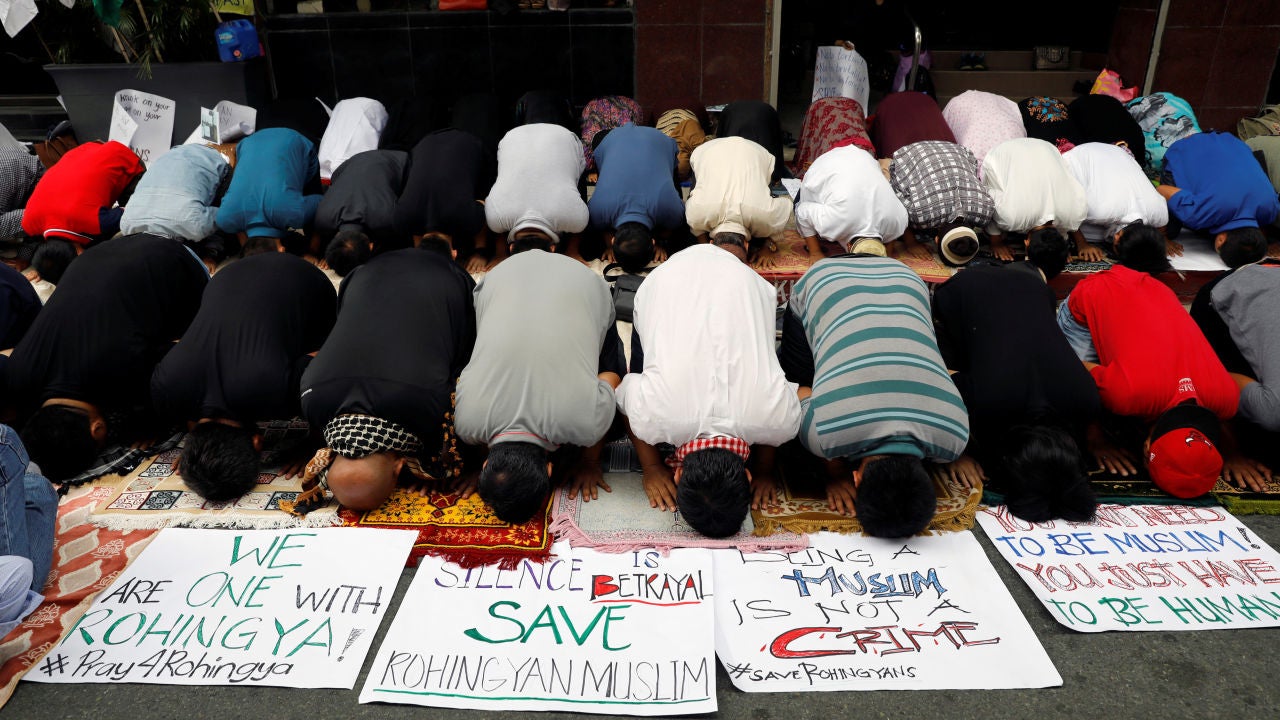 WALK ON YOUR
WE
ARE ONE WITH
ROHINGYA!
#Pray4Rohingya
SILENCE IS
BETRAYAL
SAVE
ROHINGYAN MUSLIM
BEING A
MUSLIM
IS NOT A
CRIME
#SAVEROHINGYANS
YOU DON'T NEED
TO BE MUSLIM!
YOU JUST HAVE
TO BE HUMAN